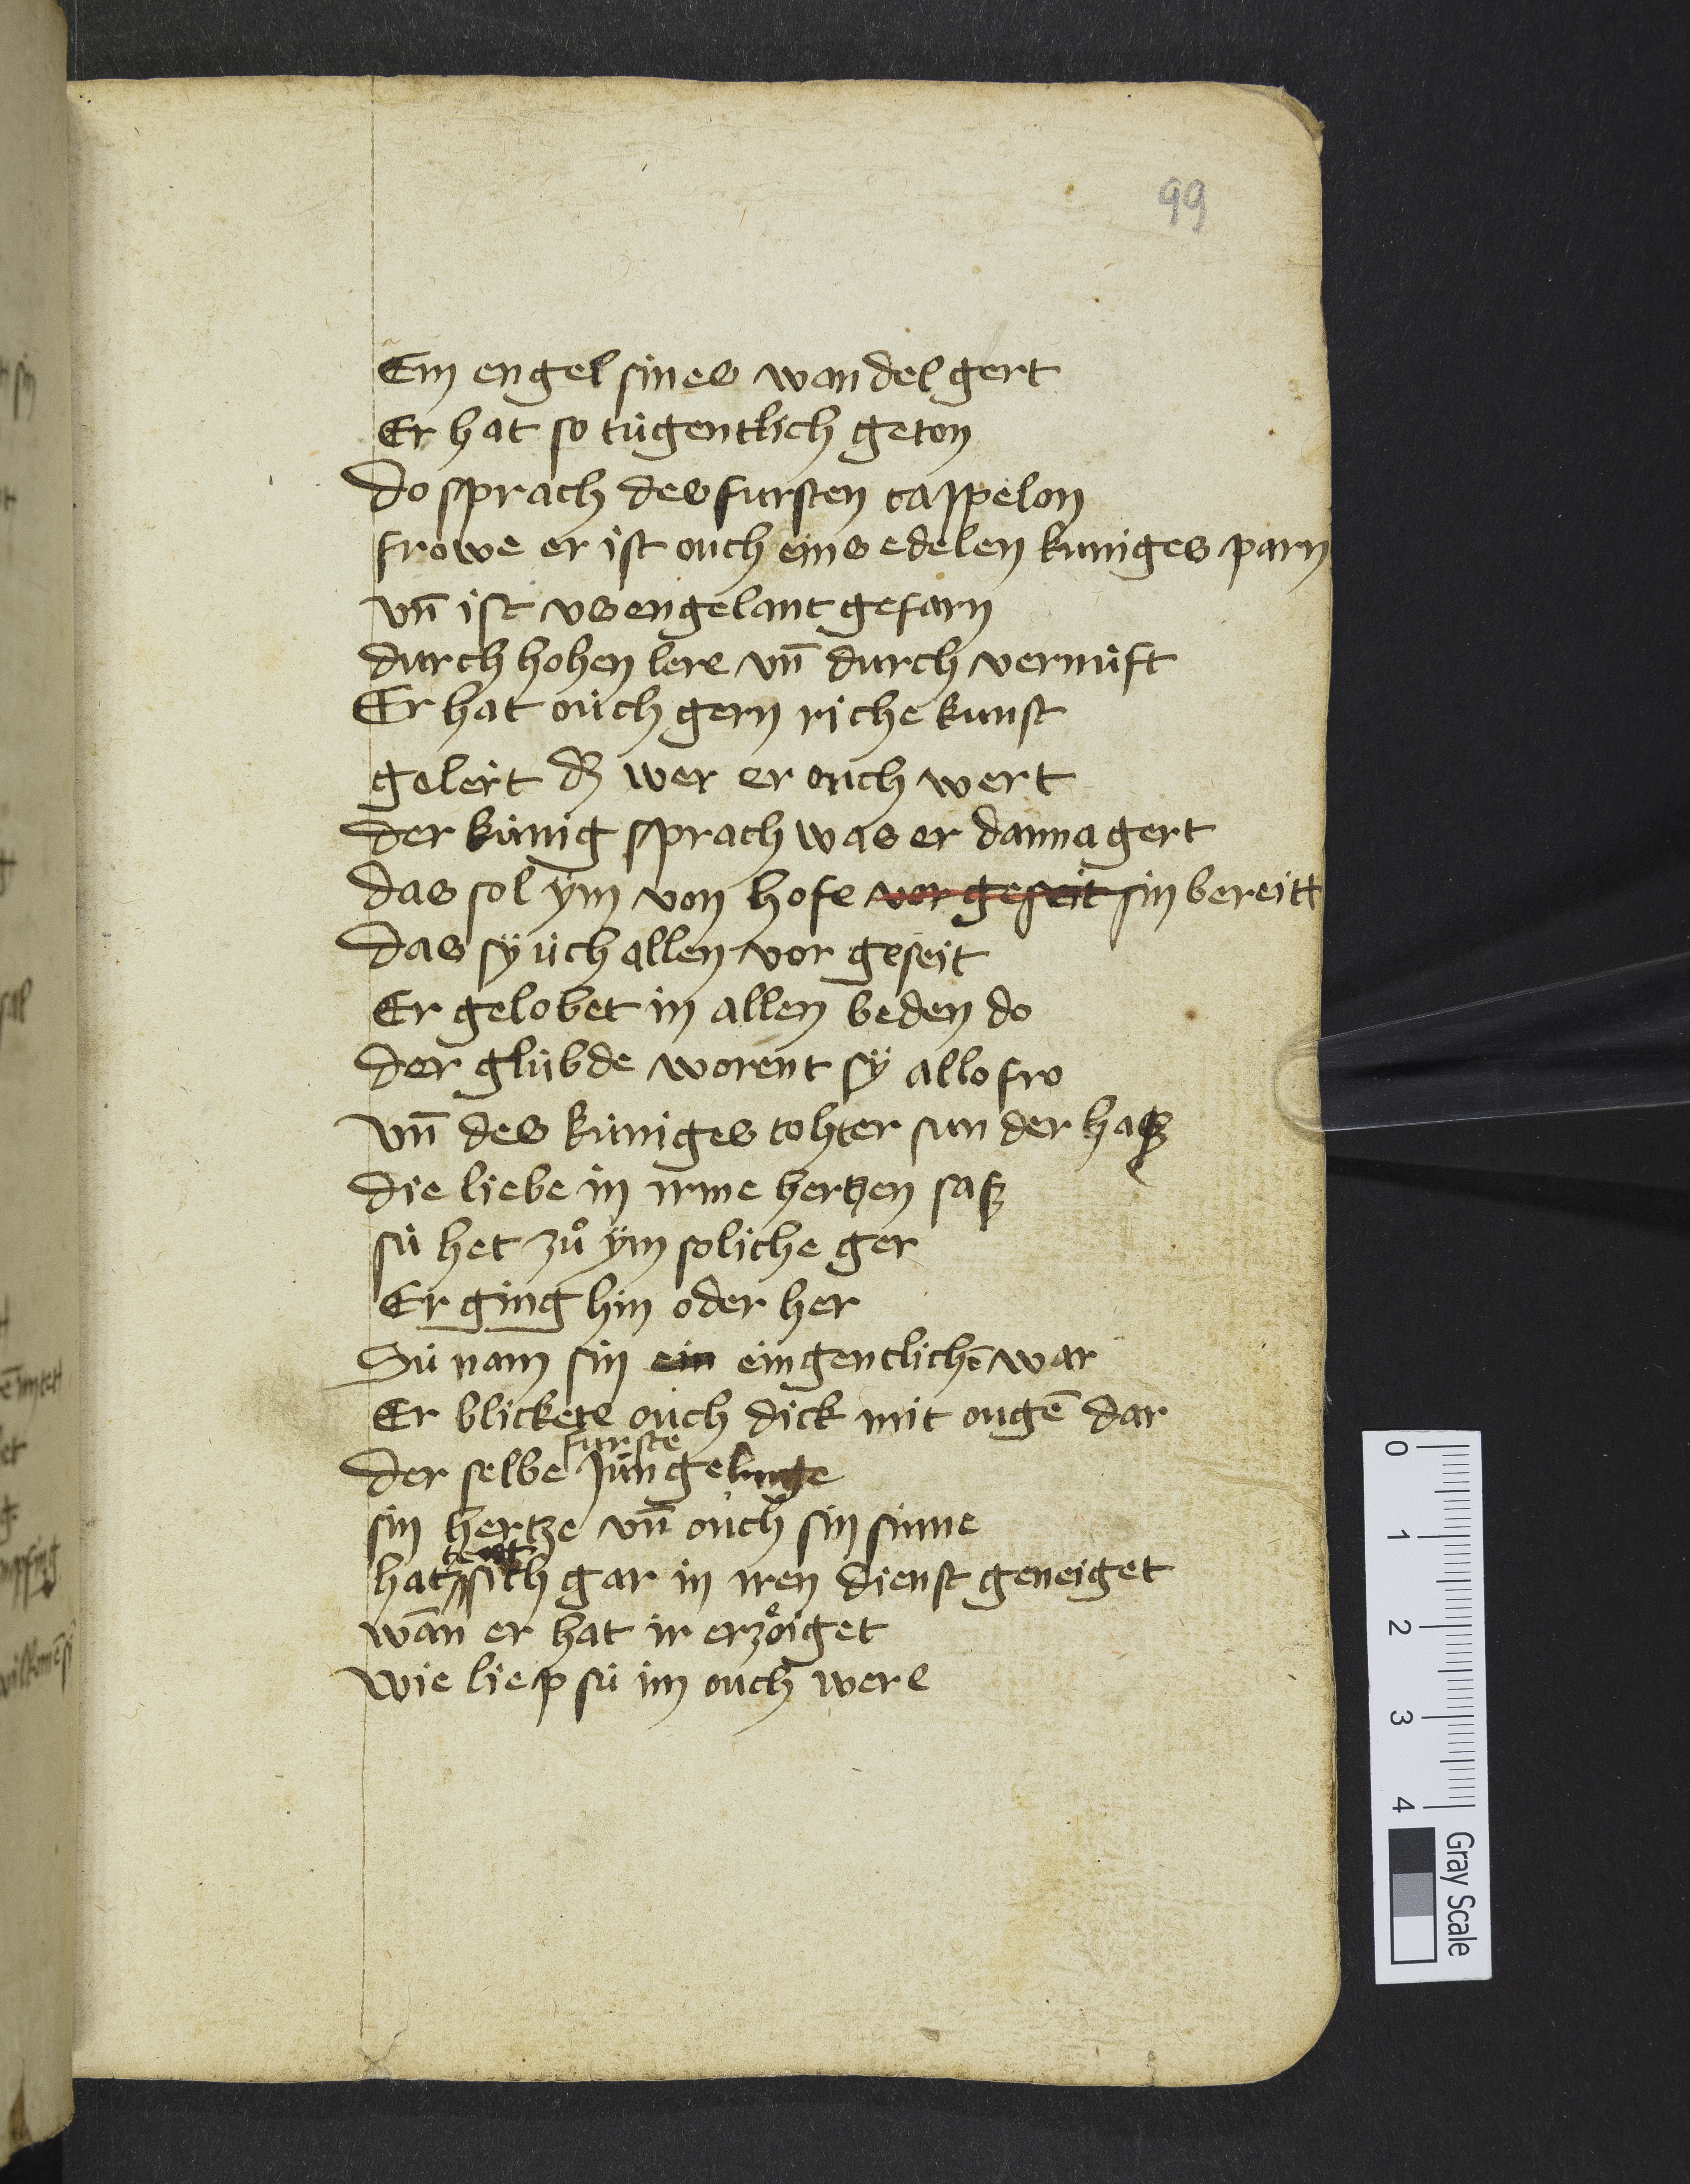 99
Ein engel sines wandel gert
Er hat so tùgentlich geton
do sprach des fursten cappelon
frowe er ist ouch eins edelen kuniges parn
vn̄ ist vs engelant gefarn
durch hohen lere vn̄ durch vernùft
Er hat oùch gern riche kunst
gelert dz wer er ouch wert
der kùnig sprach was er danna gert
das sol ÿm von hofe vor geseit sin bereitt
das sÿ ùch allen vor geseit
Er gelobet in allen beden do
der glùbde worent sÿ allo fro
vn̄ des kùniges tohter sun der hasz
die liebe in irme hertzen sasz
sù het zů ÿm soliche ger
Er ging hin oder her
Sù nam sin ein eingentlichē war
Er blickete oùch dick mit ougē dar
furste
der selbe Jùngelinge
sin hertze vn̄ oùch sin sinne
hat sich gar in iren dienst geneiget
wān er hat ir erzo̊iget
wie liep sù im ouch were
0 1 2 3 4
Gray Scale